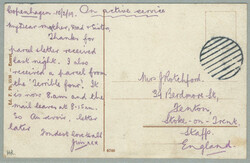 Copenhagen 18/12/19.
On active service
My dear mother, Dad & sister,
Thanks for
parcel & letter received
last night. I also
received a parcel from
the "Terrible four". It
is now 8am and the
mail leaves at 8.15am.
So au revoir, letter
later
Fondest love to all
Mrs J Rotchford.
34 Beedmore St,
Fenton,
Stoke-on-Trent.
Staffs.
England.